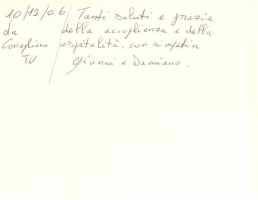 10/12/06 / Tanti saluti e grazie
da / della accoglienza e della
Conegliano / ospitalità, con simpatia
TV / Gianni e Damiano.